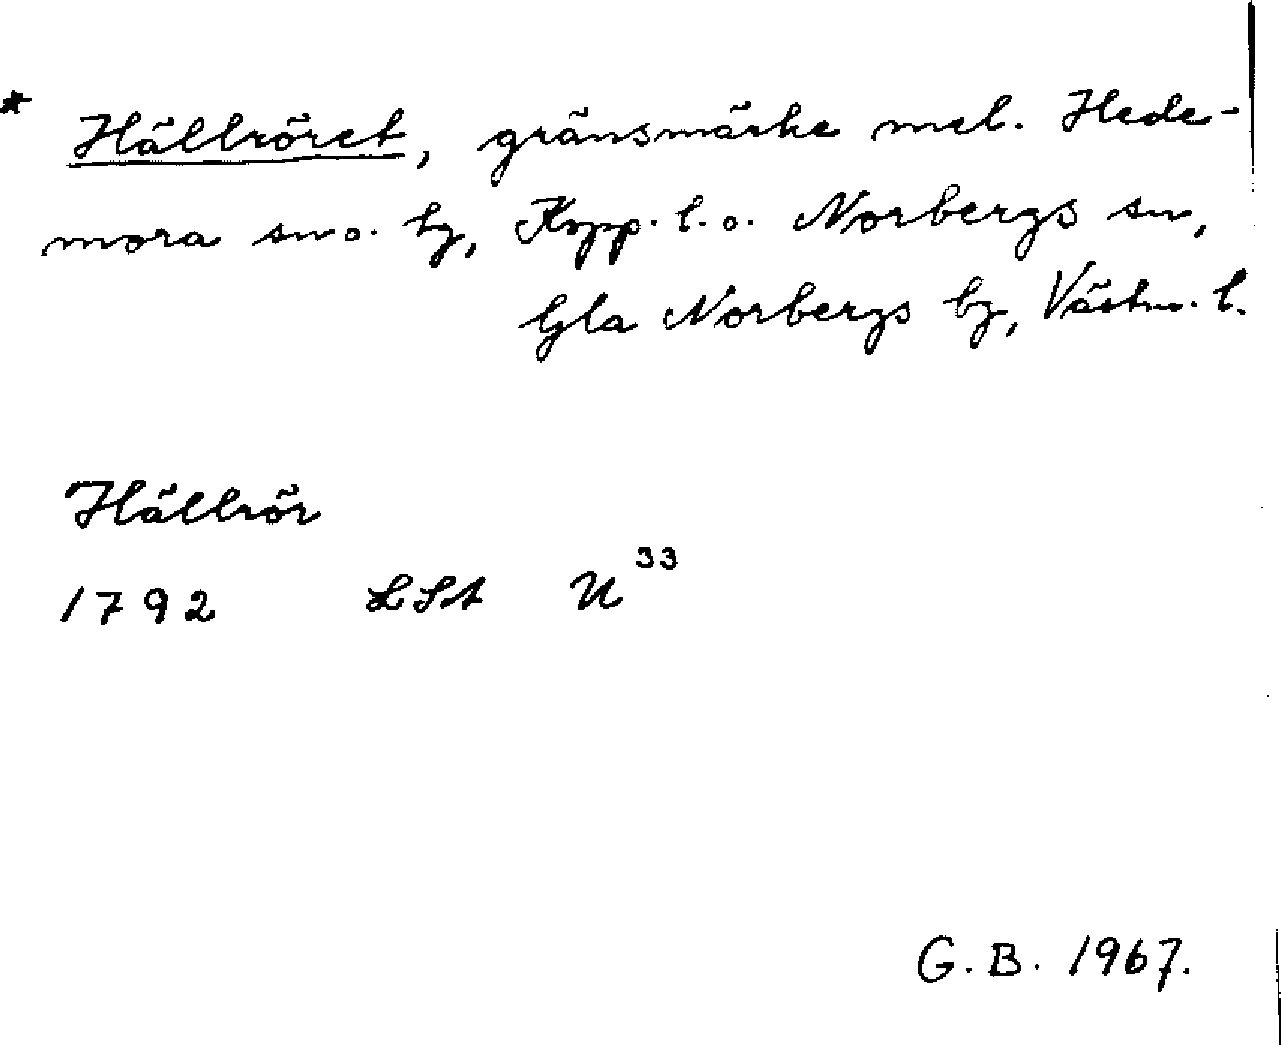 * Hällröret, gränsmärke mel. Hede-
mora sn o. hg, Kopp. l. o. Norbergs sn,
Gla Norbergs bg, Västm. l.
Hällrör
1792 LSt U33
G. B. 1967.